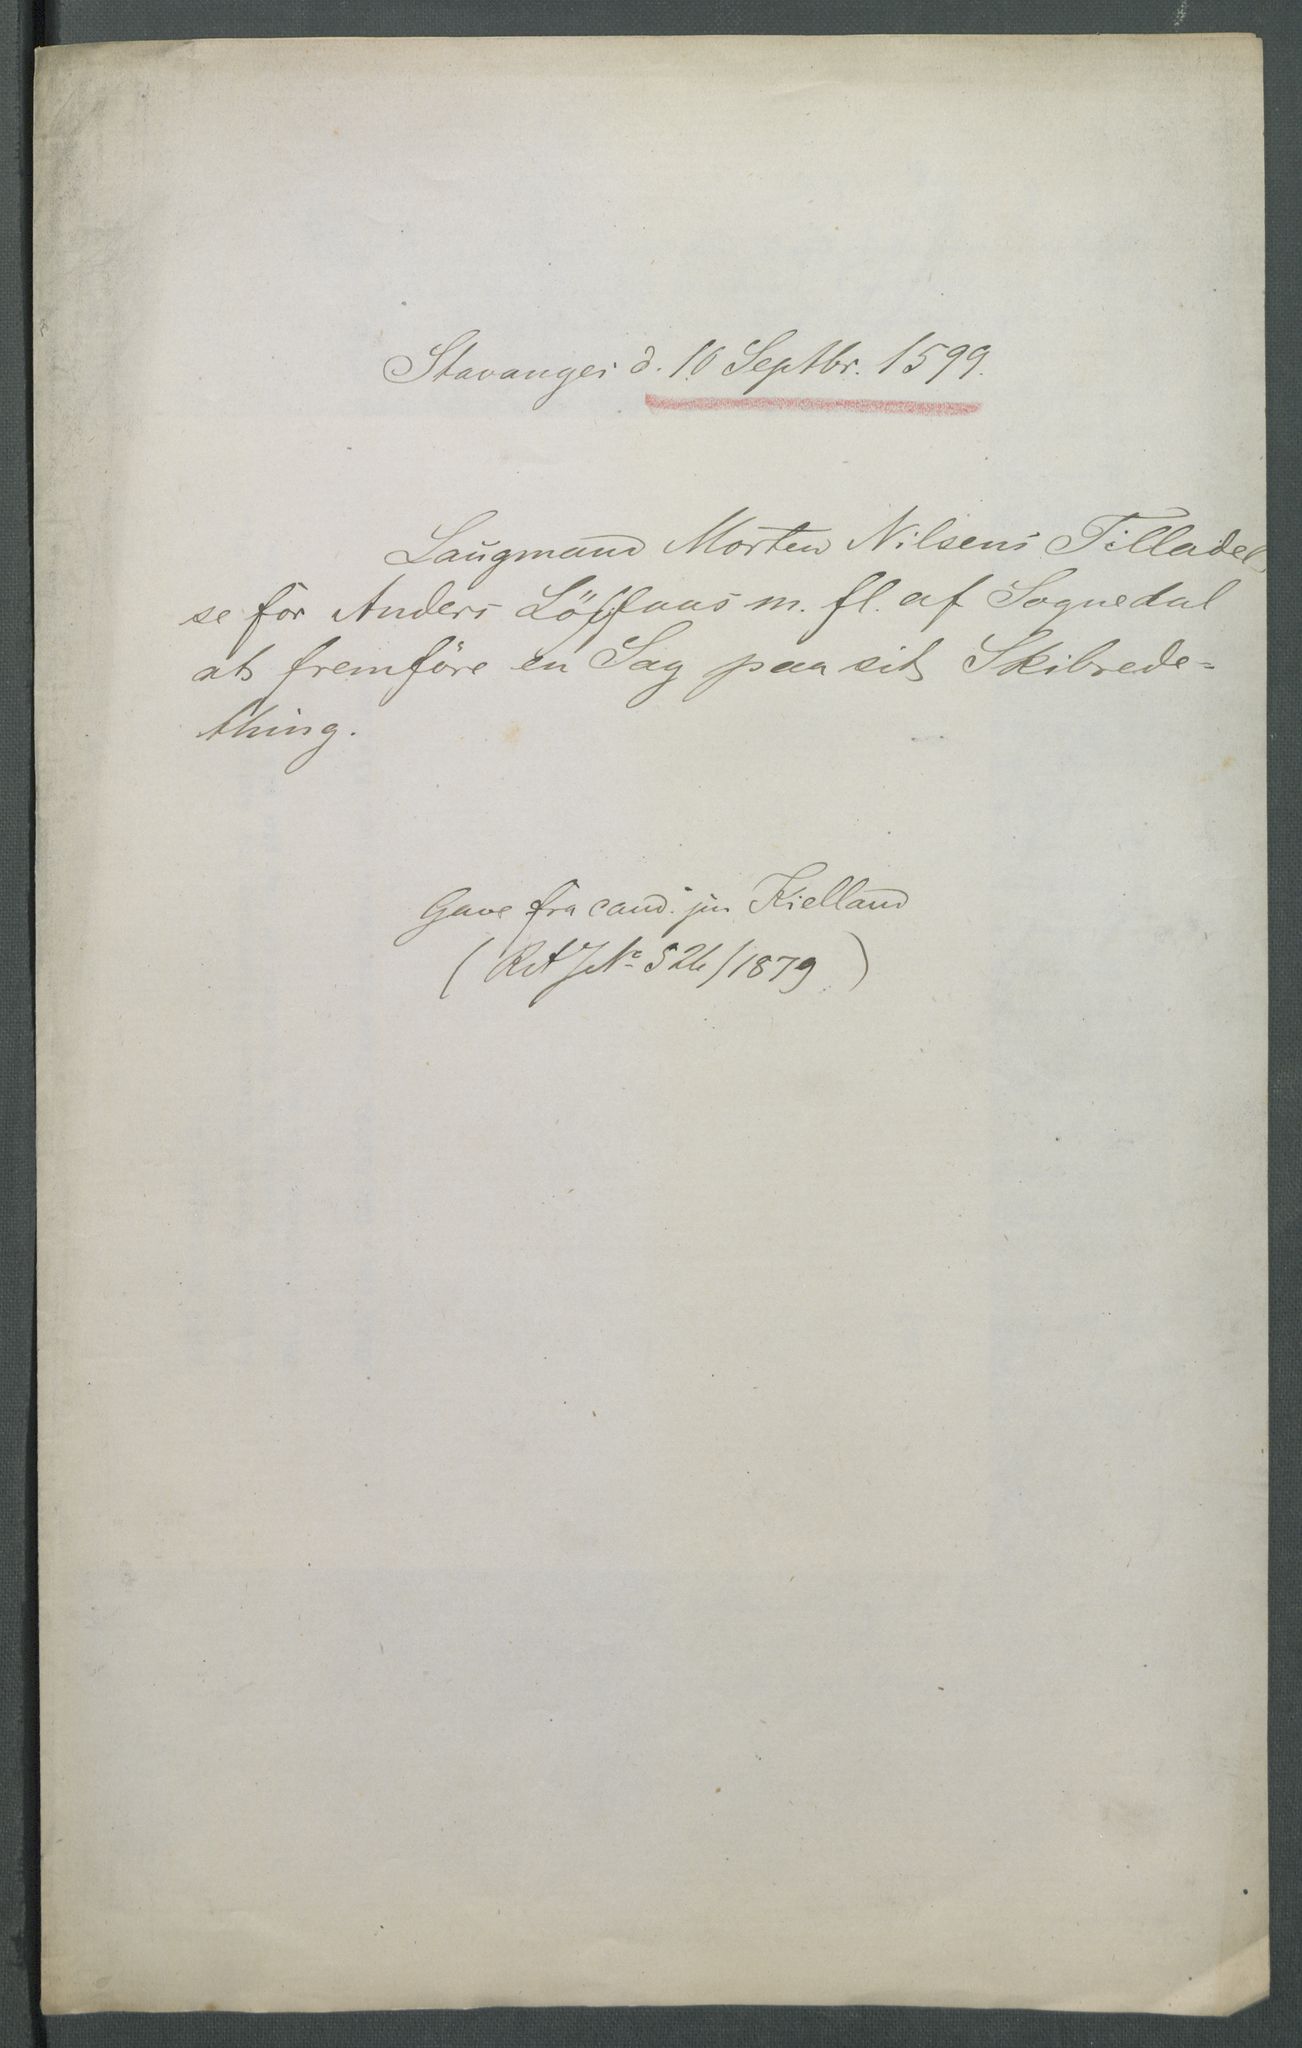 Stavanger d. 10 Septbr. 1599.
Laugmand Morten Nilsens Tilladel
se for Anders Löffaas m. fl. af Sognedal
at fremföre en Sag paa sit Skibrede-
thing.
Gave fra cand. jur Kielland
( JNo 526/1879 )